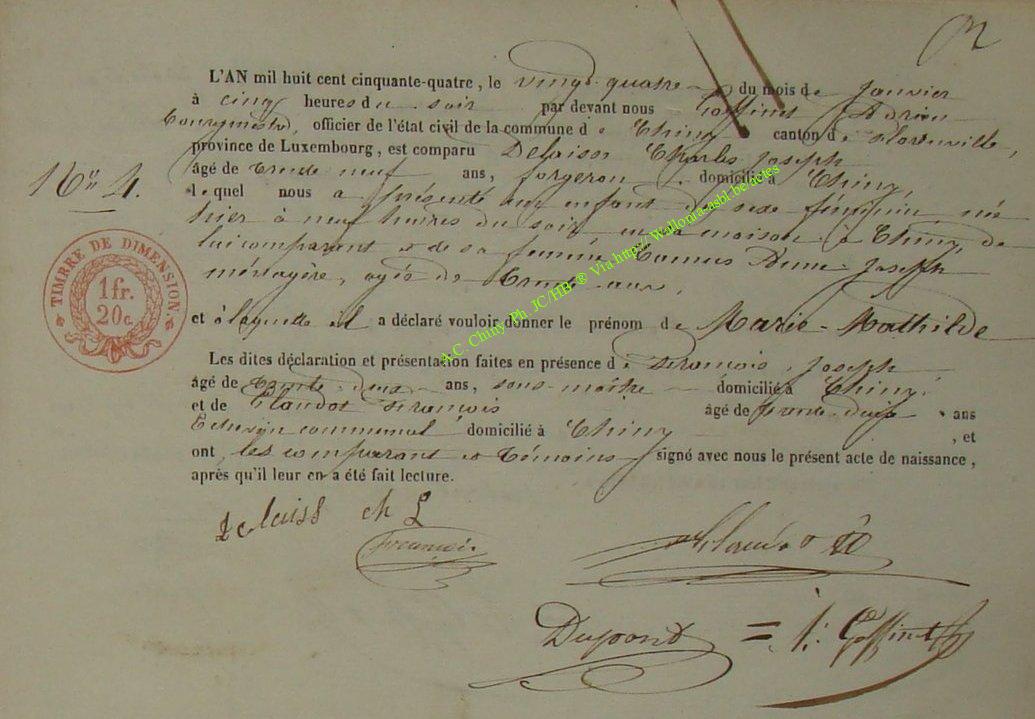 L'AN mil huit cent cinquante-quatre, le vingt-quatre du mois de Janvier
à cinq heures du soir par devant nous Goffinet Adrien
Bourgmestre, officier de l'état civil de la commune de Chiny canton de Florenville,
province de Luxembourg, est comparu Delaisse Charles Joseph
âgé de trente neuf ans, forgeron domicilié à Chiny,
lequel nous a présenté un enfant de sexe féminin, née
hier à neuf heures du soir en sa maison à Chiny de
lui comparant et de sa femme Joseph
ménagère, agée de trente ans,
et à laquelle il a déclaré vouloir donner le prénom de Marie-Mathilde
Les dites déclaration et présentation faites en présence de François Joseph
âgé de trente-deux ans, sous-maître domicilié à Chiny
et de Claudot François âgé de ans
Echevin communal domicilié à Chiny , et
ont les comparant et témoins signé avec nous le présent acte de naissance,
après qu'il leur en a été fait lecture.
N° 4.
TIMBRE DE DIMENSION
1 fr.
20 c.
A.C. Chiny Ph JC/HB ® Via http:// Wallonia-asbl.be/actes
delaiss ch
françois
Claudot
Dupont = Goffinet